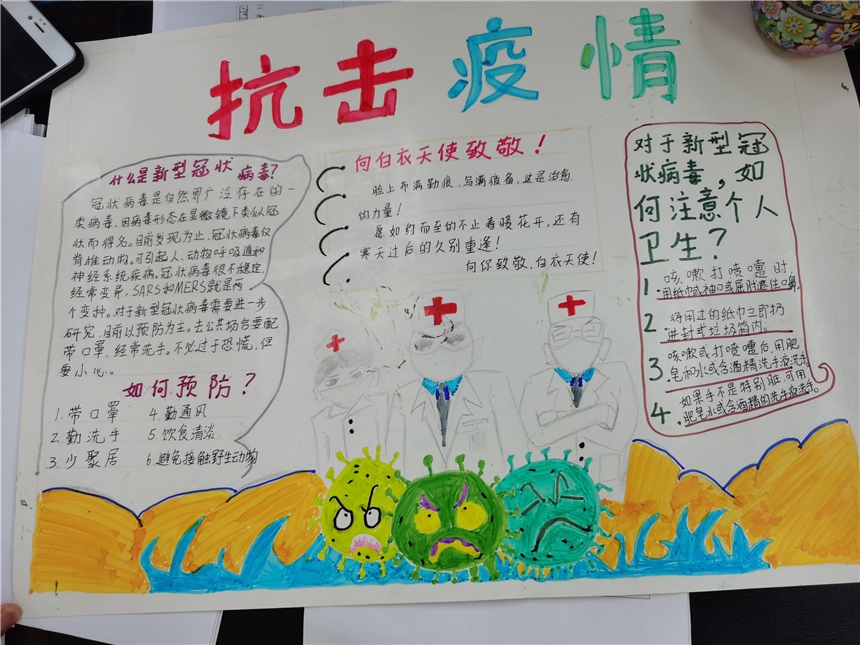 抗击疫情
什么是新型冠状病毒?
冠状病毒是自然界广泛存在的一
类病毒,因病毒形态在显微镜下类似冠
状而得名。目前发现为止,冠状病毒仅
脊椎动物。可引起人、动物呼吸道和
神经系统疾病。冠状病毒很不稳定,
经常变异,SARS和MERS就是两
个变种。对于新型冠状病毒需要进一步
研究,目前以预防为主。去公共场合要配
带口罩,经常洗手。不必过于恐慌,但
要小心。
如何预防?
1.带口罩 4.勤通风
2.勤洗手 5.饮食清淡
3.少聚居 6.避免接触野生动物
向白衣天使致敬!
脸上布满勒痕,写满疲备,这是治愈
的力量!
愿如约而至的不止春暖花开,还有
寒天过后的久别重逢!
向你致敬,白衣天使!
对于新型冠
状病毒,如
何注意个人
卫生?
1.咳嗽打喷嚏时,
用纸巾或袖口或屈肘遮住口鼻。
2.将用过的纸巾立即扔
进封或垃圾箱内。
3.咳嗽或打喷嚏后,用肥
皂和水或含酒精洗手液洗手。
4.如果手不是特别脏,可用
肥皂水或含酒精的洗手液洗手。